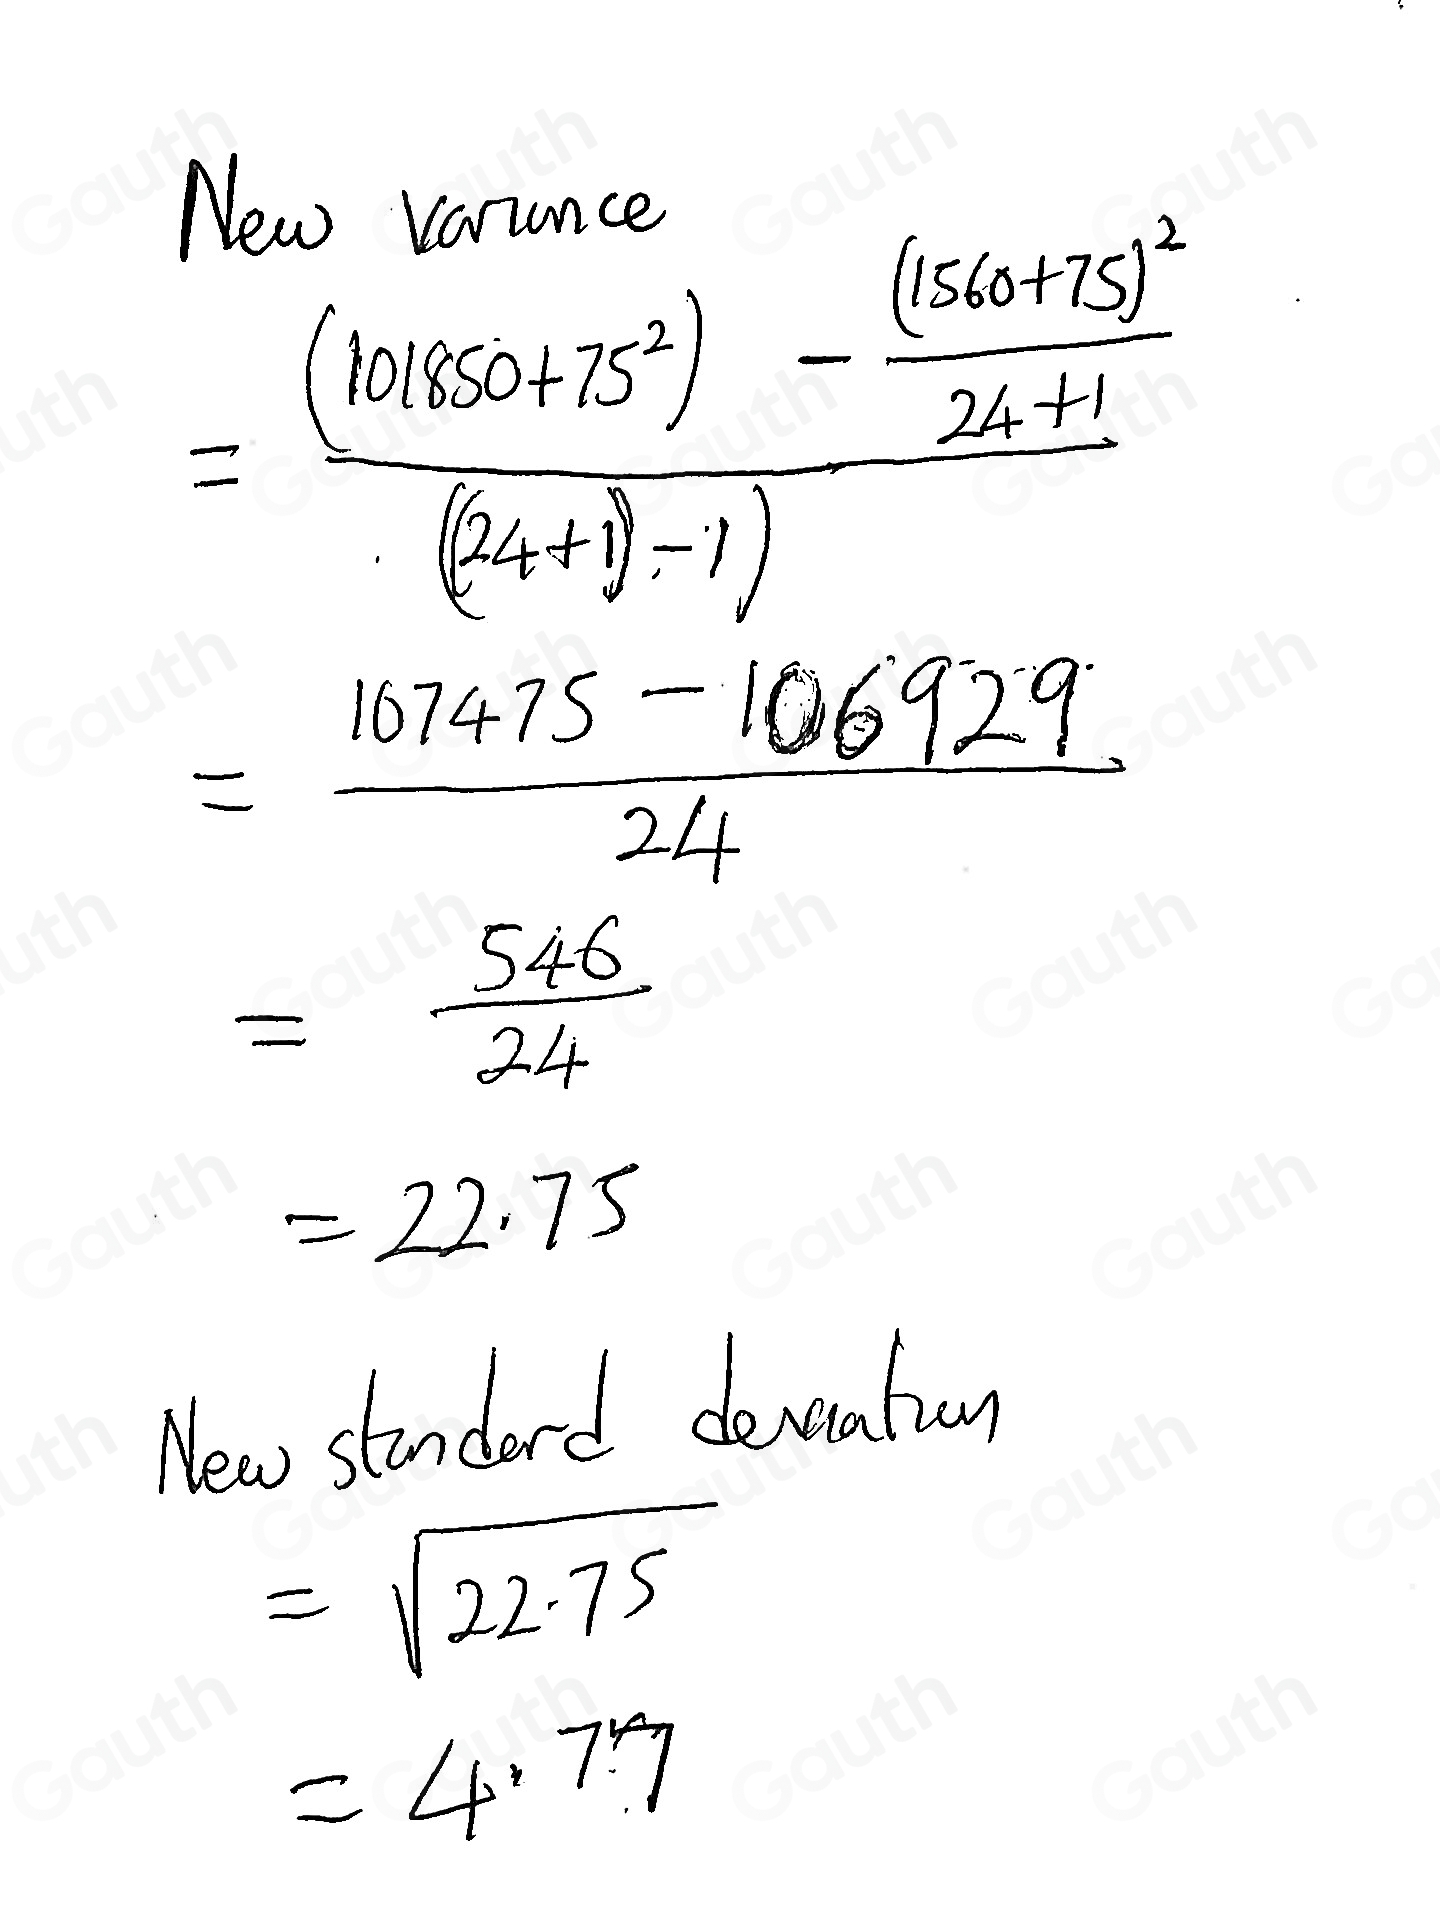 New variance
= ((101850+75²) - (1560+75)²/(24+1)) / ((24+1)-1)
= (107475 - 106929) / 24
= 546/24
= 22.75
New standard deviation
= √22.75
= 4.77